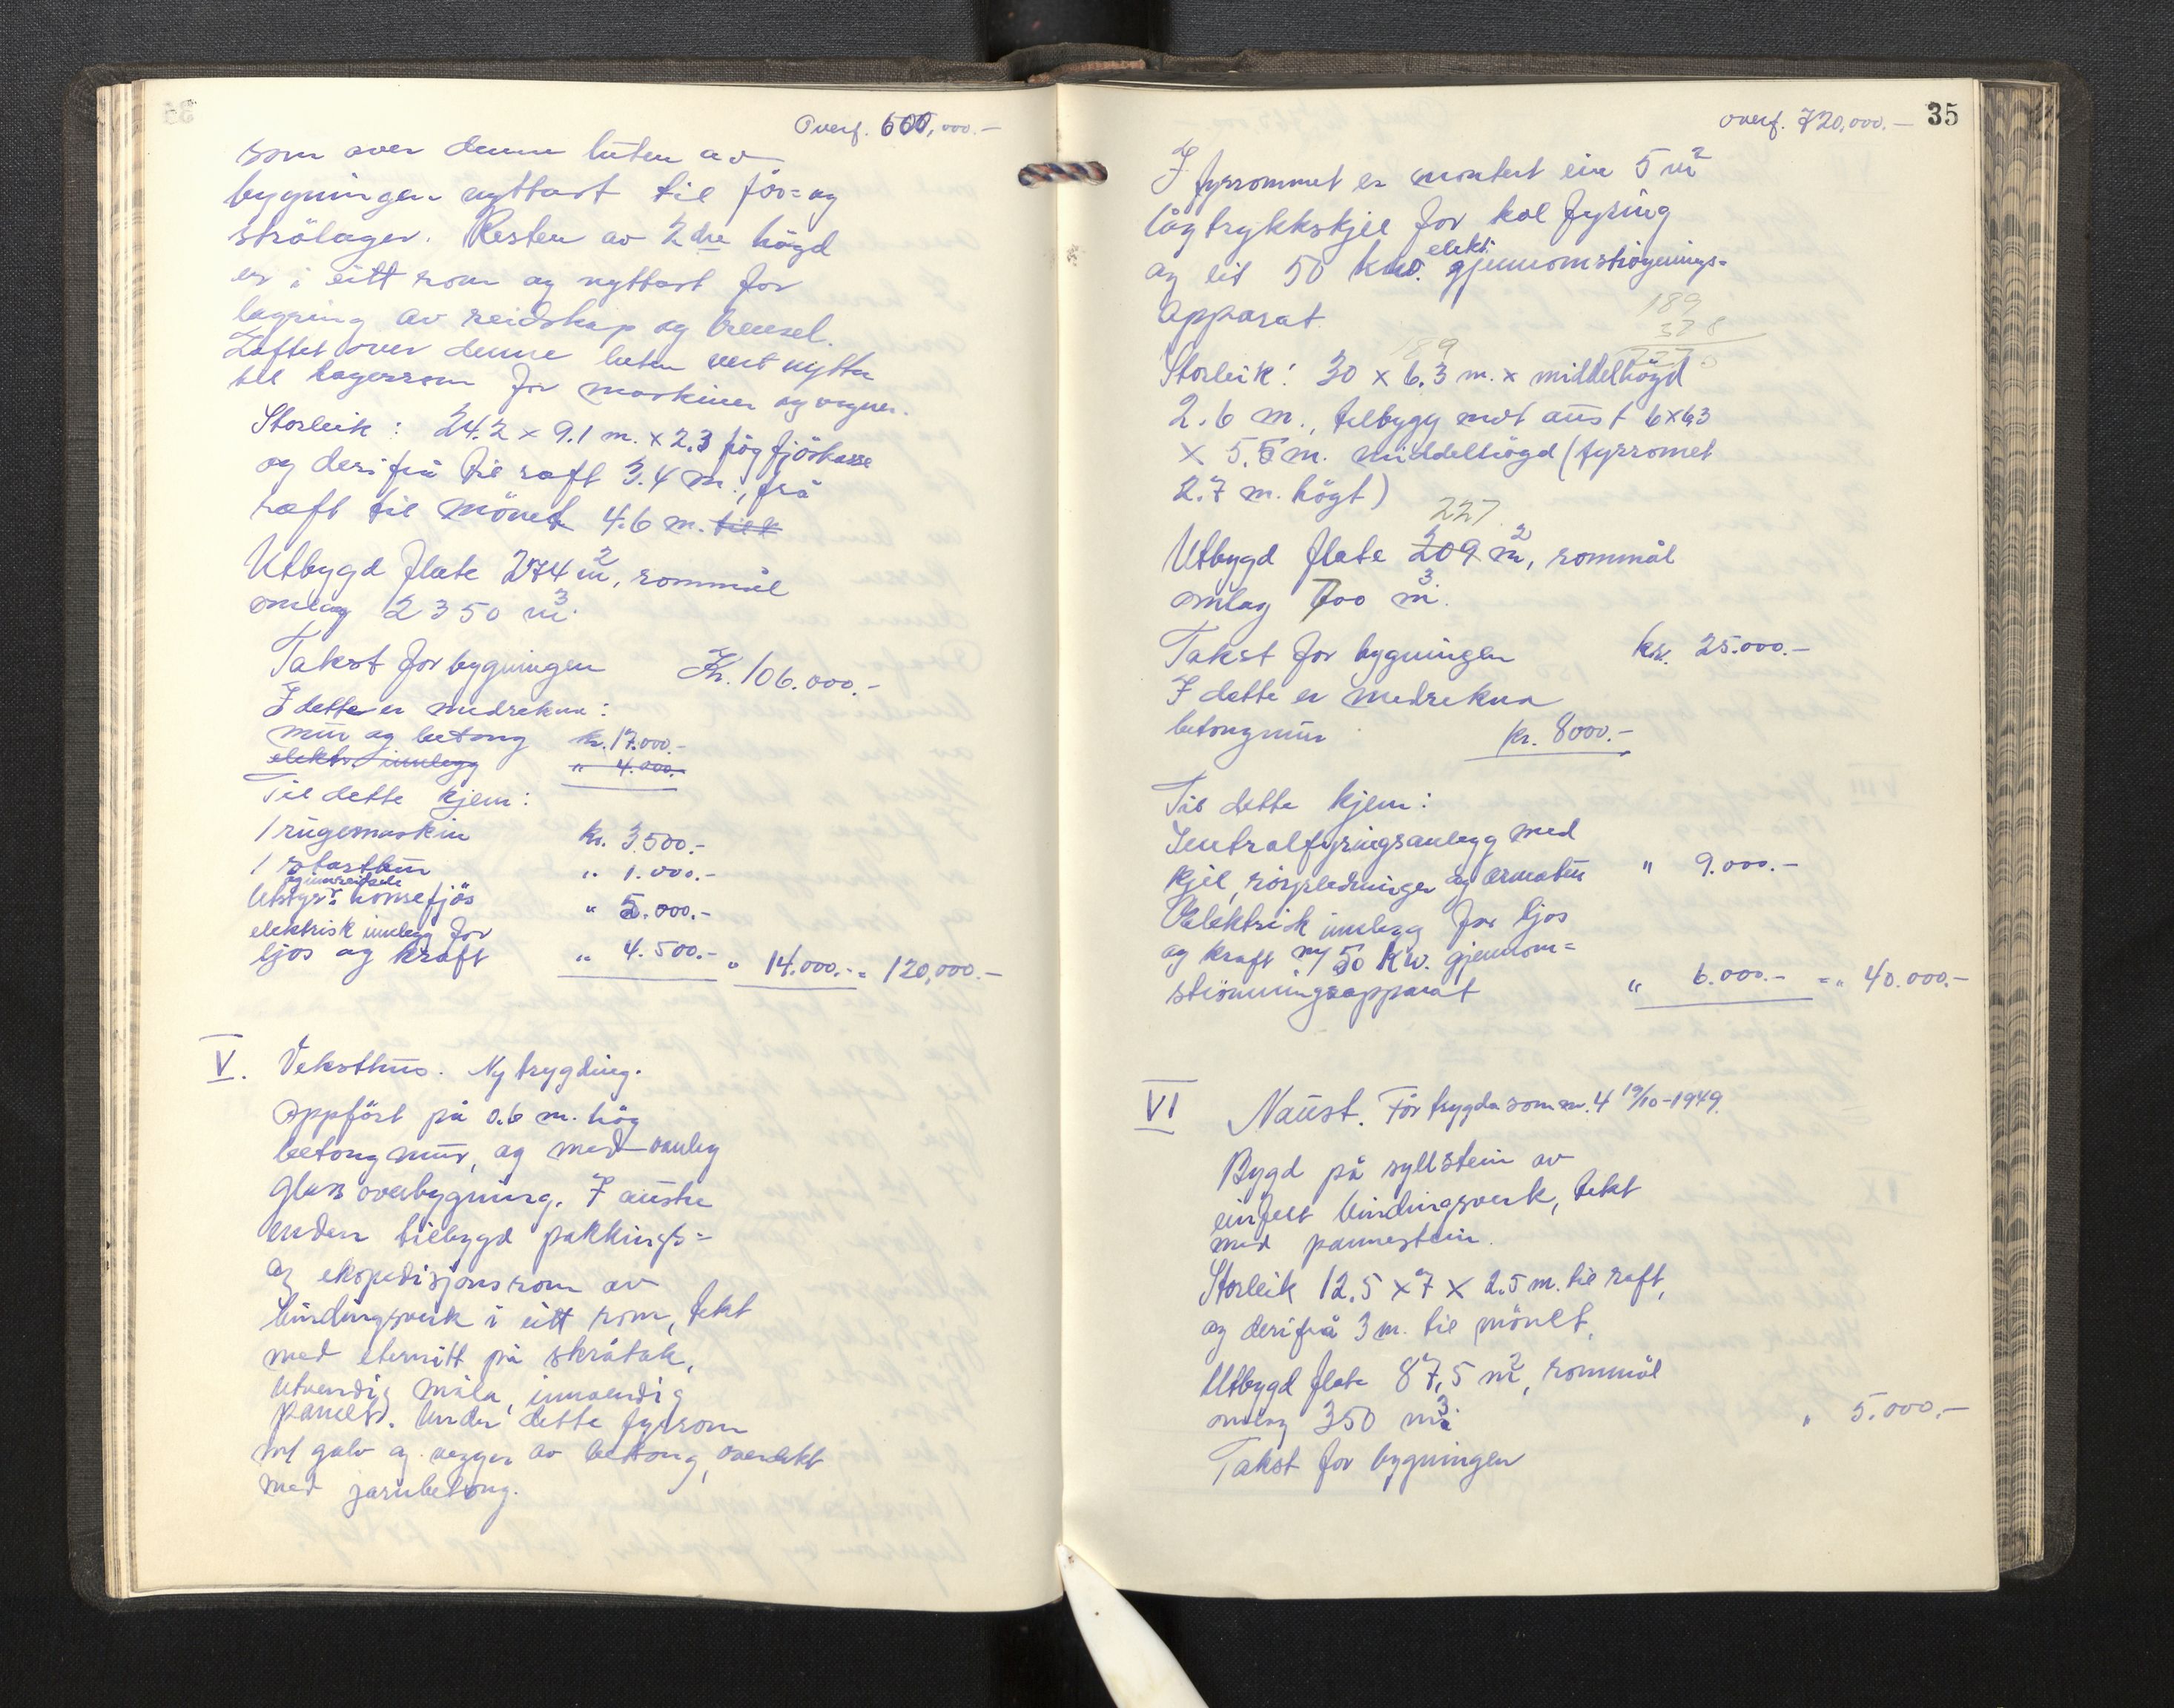 Overf. 600,000.-
som over denne luten av
bygningen nyttast til fôr= og
strölager. Resten av 2dre högd
er i eitt rom og nyttast for
lagring av reidskap og brensel.
Loftet over denne luten vert nytta
til lagerrom for maskiner og vogner.
Storleik: 24.2 x 9.1 m. x 2.3 hög fjöskasse
og derifrå til raft 3.4 m., frå
raft til mönet 4.6 m. til r
Utbygd flate 274 m2, rommål
omlag 2350 m3.
Takst for bygningen Kr. 106.000.-
I dette er medrekna:
mur og betong kr. 17.000.-
elektr. innlegg " 4.000.-
Til dette kjem:
1 rugemaskin kr. 3.500.-
1 " 1.000.-
og innreide
Utstyr i hönsefjös " 5.000.-
elektrisk innlegg for
ljos og kraft " 4.500.- " 14.000.- = 120,000.-
V. Veksthus. Nytrygding.
Oppfört på 0.6 m. hög
betongmur, og med vanleg
glasoverbygning. I austre
enden tilbygd pakkings=
og ekspedisjonsrom av
bindingsverk i eitt rom, tekt
med eternitt på skråtak,
utvendig måla, innvendig
panelt. Under dette fyrrom
m/ golv og vegger av betong, overdekt
med jarnbetong.
overf. 720,000.- 35
I fyrrommet er montert ein 5 m2
lågtrykkskjel for kolfyring
elektr.
og eit 50 kw. gjennomströymings=
apparat.
189
378
Storleik: 30 x 6.3 m. x middelhögd
2.6 m., tilbygg mot aust 6x6,3
x 5.5 m. middelhögd (fyrromet
2.7 m. högt)
227
Utbygd flate 209 m2, rommål
omlag 700 m3.
Takst for bygningen kr. 25.000.-
I dette er medrekna
betongmur kr. 8000.-
Til dette kjem:
Sentralfyringsanlegg med
kjel, röyrledninger og armatur " 9.000.-
Elektrisk innlegg for ljos
og kraft m/ 50 Kw. gjennom=
strömningsapparat " 6.000.- = " 40.000.-
VI Naust. För trygda som nr. 4 19/10-1949.
Bygd på syllstein av
einfelt bindingsverk, tekt
med pannestein.
Storleik 12.5 x 7 x 2.5 m. til raft,
og derifrå 3 m. til mönet.
Utbygd flate 87,5 m2, rommål
omlag 350 m3.
Takst for bygningen " 5.000.-